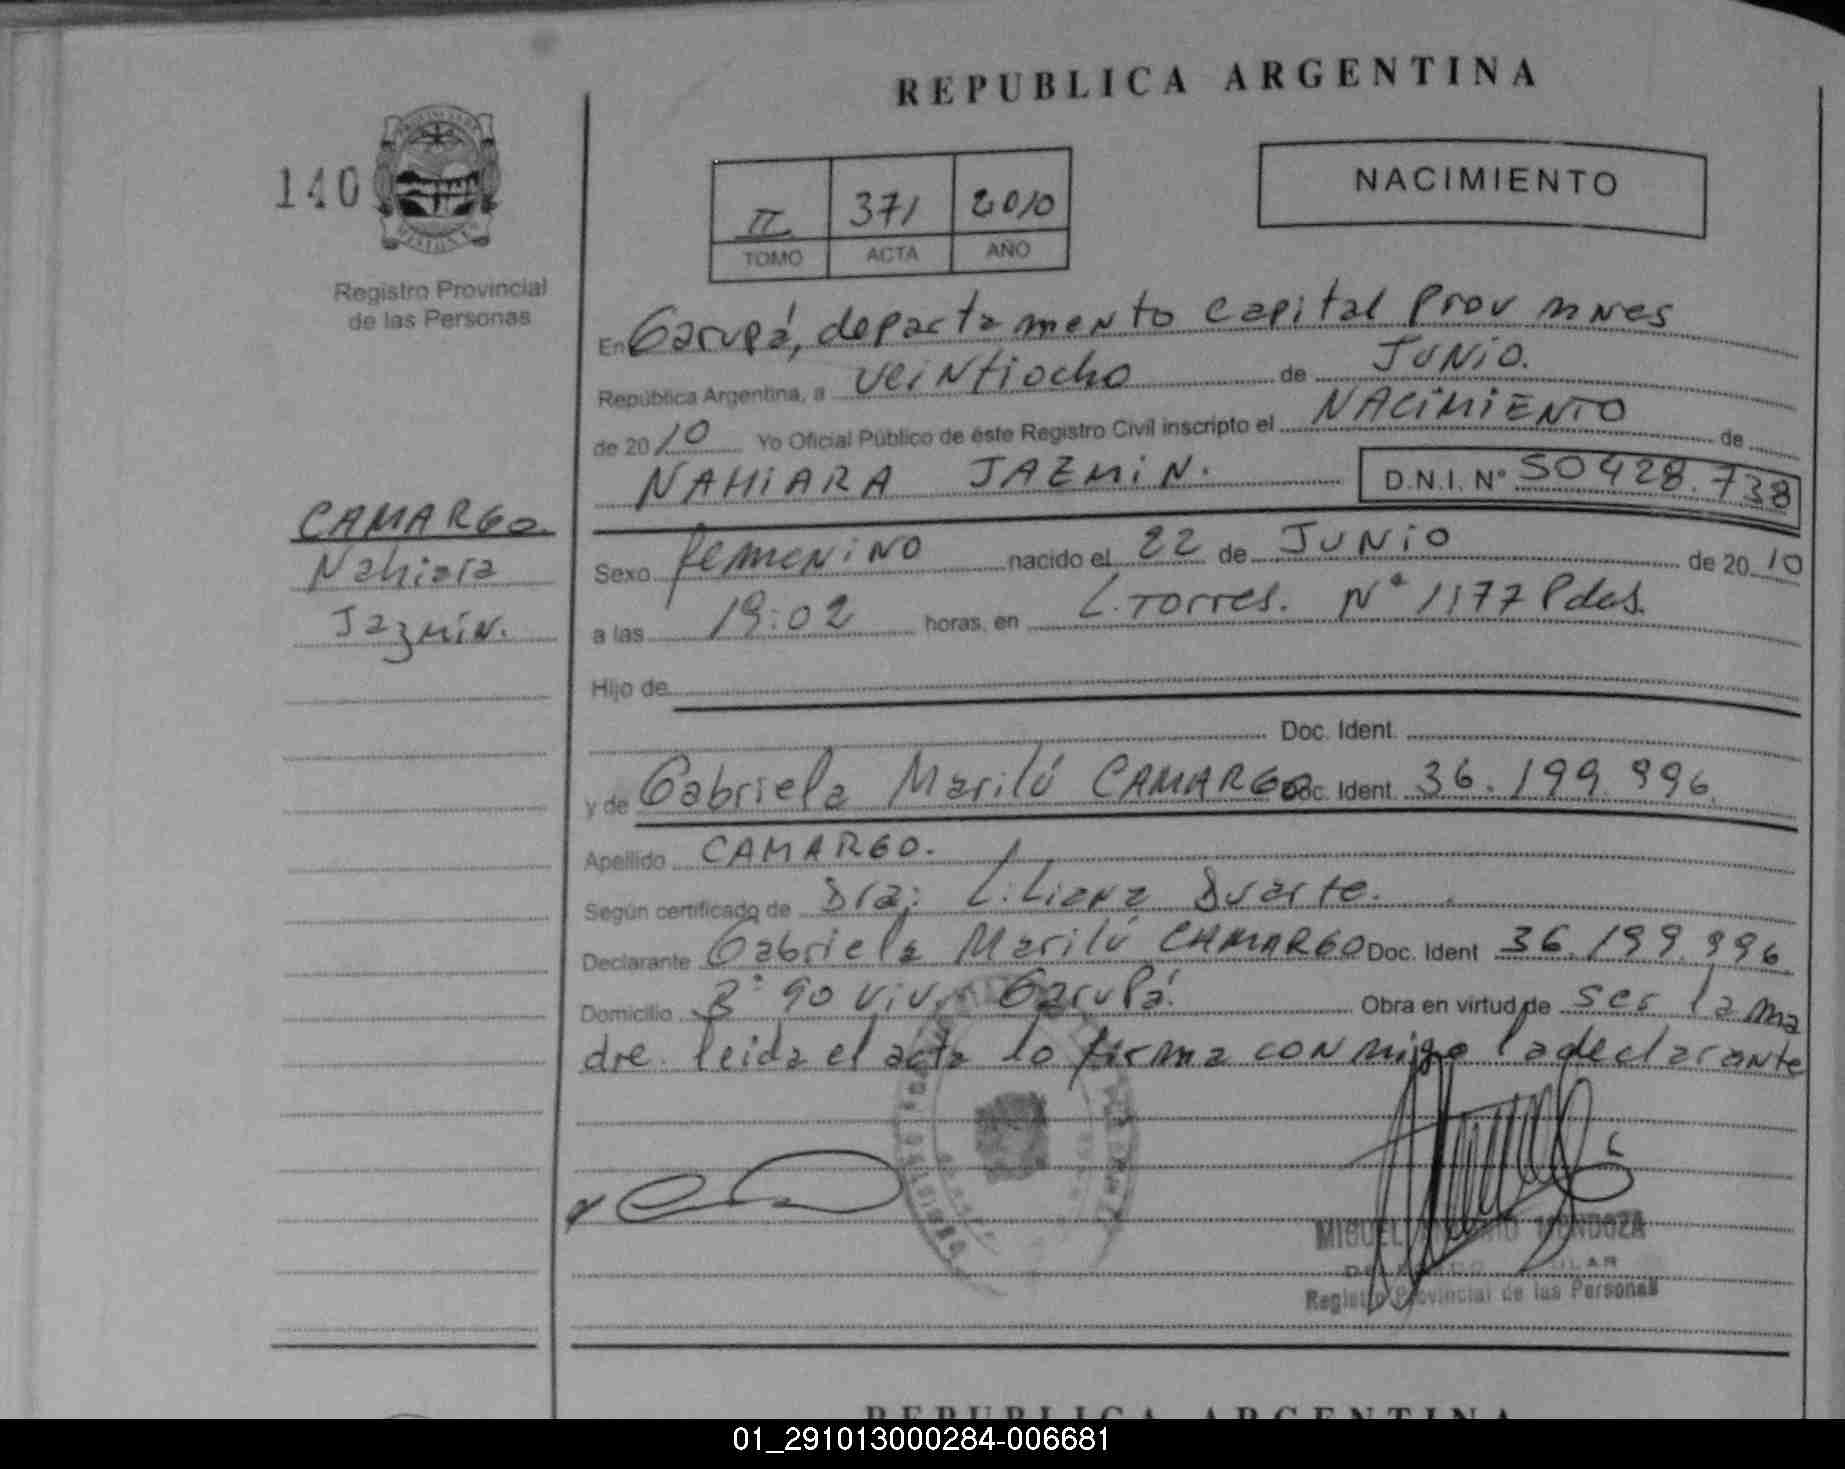 REPUBLICA ARGENTINA
140
PROVINCIA DE MISIONES
Registro Provincial
de las Personas
II 371 2010
TOMO ACTA AÑO
NACIMIENTO
En Garupá, departamento Capital Prov mnes
República Argentina, a veintiocho de JUNIO.
de 2010 Yo Oficial Público de éste Registro Civil inscripto el NACIMIENTO de
NAHIARA JAZMIN. D.N.I. Nº 50428.738
CAMARGO.
Nahiara
Jazmin.
Sexo femenino nacido el 22 de JUNIO de 2010
a las 19:02 horas, en L. Torres. Nº 1177 Pdas.
Hijo de
Doc. Ident.
y de Gabriela Marilú CAMARGO Doc. Ident. 36.199.996
Apellido CAMARGO.
Según certificado de Dra: Liliana Duarte.
Declarante Gabriela Marilú CAMARGO Doc. Ident 36.199.996
Domicilio Bº 90 viv. Garupá. Obra en virtud de ser la ma
dre. leida el acta lo firma conmigo la declarante
MIGUEL MENDOZA
Registro Provincial de las Personas
REPUBLICA ARGENTINA
01_291013000284-006681